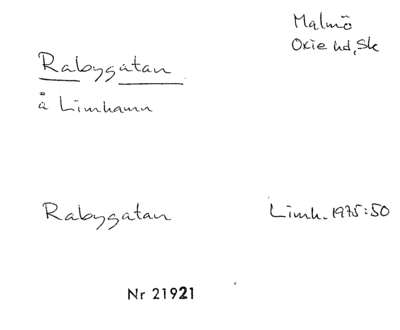 Malmö
Oxie hd, Sk
Rabygatan
å Limhamn
Rabygatan Limh. 1975:50
Nr 21921